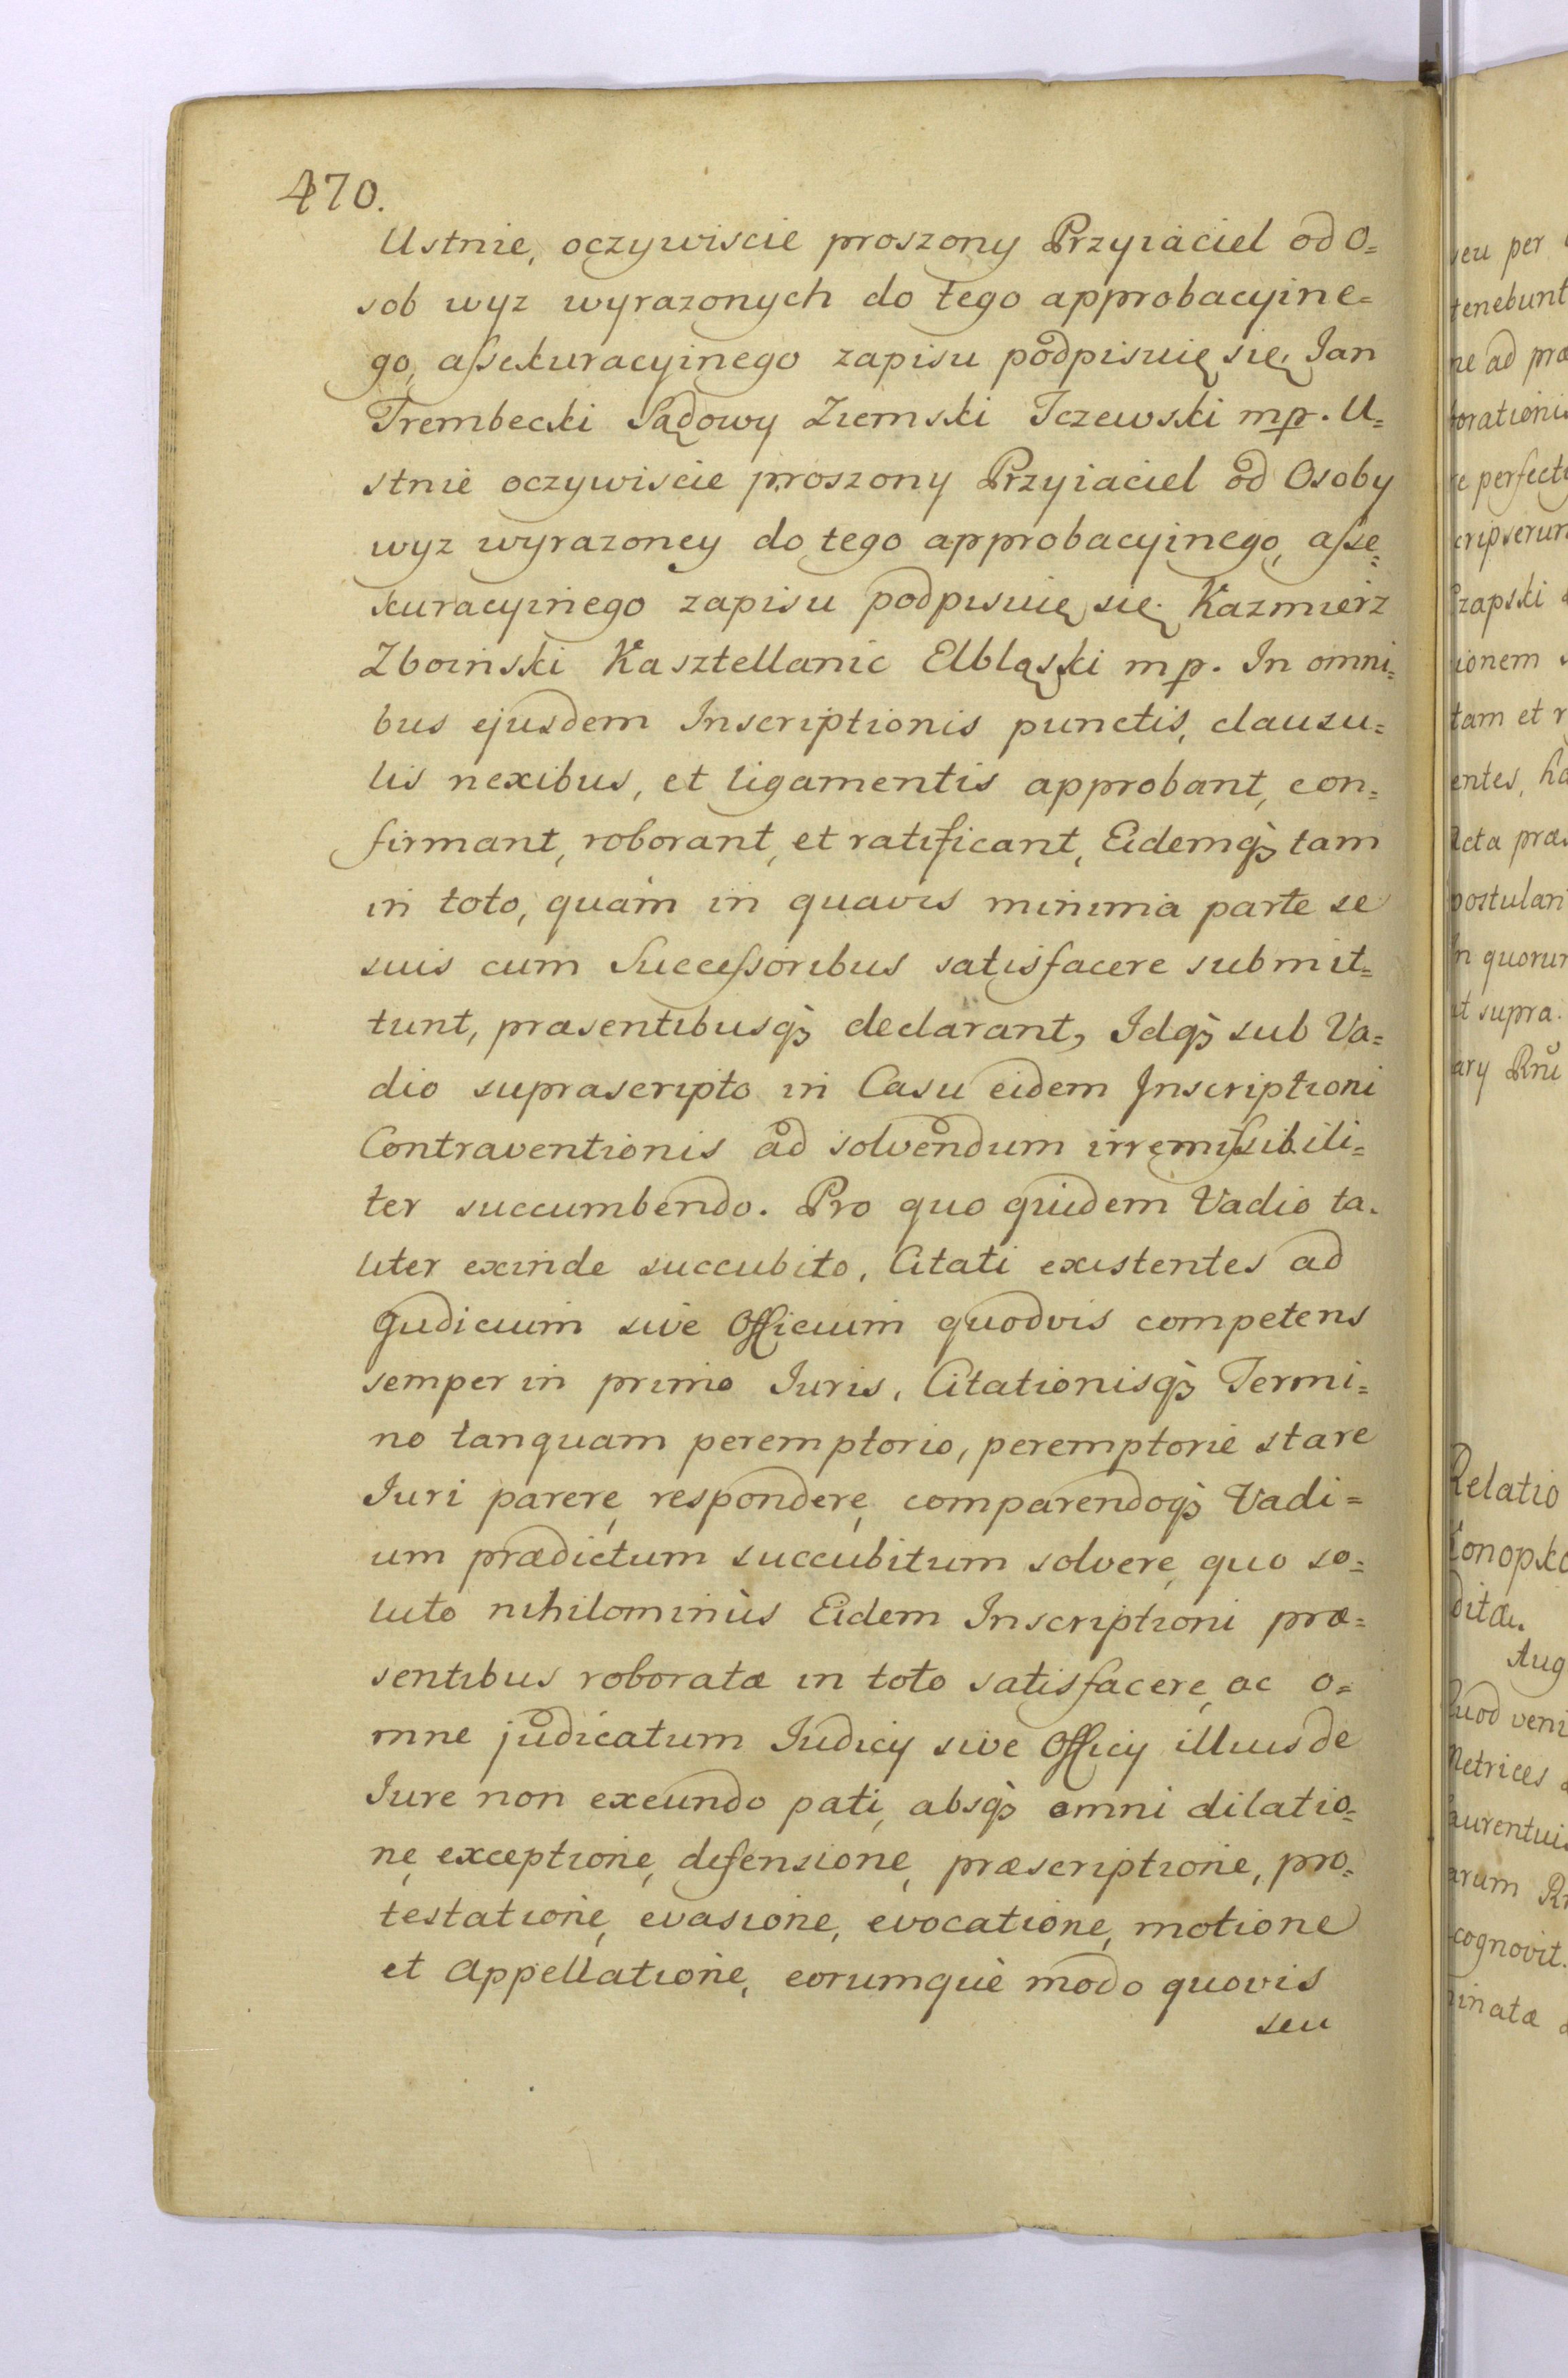 470.
Ustnie, oczywiscie proszony Przyiaciel od O=
sob wyz wyrazonych do tego approbacyine=
go, aſsekuracyinego zapisu podpisuię się, Ian
Trembecki Sądowy Ziemski Tczewski mp. U=
stnie oczywiscie proszony Przyiaciel od Osoby
wyz wyrazoney do tego approbacyinego, aſse=
kuracyinego zapisu podpisuię się. Kazmierz
Zboinski Kasztellanic Elbląski mp. In omni=
bus ejusdem Inscriptionis punctis, clausu=
lis nexibus, et ligamentis approbant, con=
firmant, roborant, et ratificant, Eidemq̀₃ tam
in toto, quàm in quavis minima parte se
suis cum Succeſsoribus satisfacere submit=
tunt, præsentibusq̀₃ declarant, Idq̀₃ sub Va=
dio suprascripto in Casu eidem Inscriptioni
Contraventionis ad solvendum irremiſsibili=
ter succumbendo. Pro quo quidem Vadio ta=
liter exinde succubito, Citati existentes ad
Judicium sive Officium quodvis competens
semper in primo Iuris, Citationisq̀₃ Termi=
no tanquam peremptorio, peremptorie stare
Iuri parere, respondere, comparendoq̀₃ Vadi=
um prædictum succubitum solvere, quo so=
luto nihilominùs Eidem Inscriptioni præ=
sentibus roboratæ in toto satisfacere, ac o=
mne judicatum Iudicij sive Officij illius de
Iure non exeundo pati, absq̀₃ omni dilatio=
ne, exceptione, defensione, præscriptione, pro=
testatione, evasione, evocatione, motione
et Appellatione, eorumquè modo quovis
seu
seu per
tenebunt
ne ad præ
borationis
perfect
cripserun
Czapski
ionem
tam et r
entes, ha
Acta præ
postulan
In quorum
ut supra.
Relatio
Konopk
ditæ.
Aug
Quod veni
arum
cognovit.
inatæ